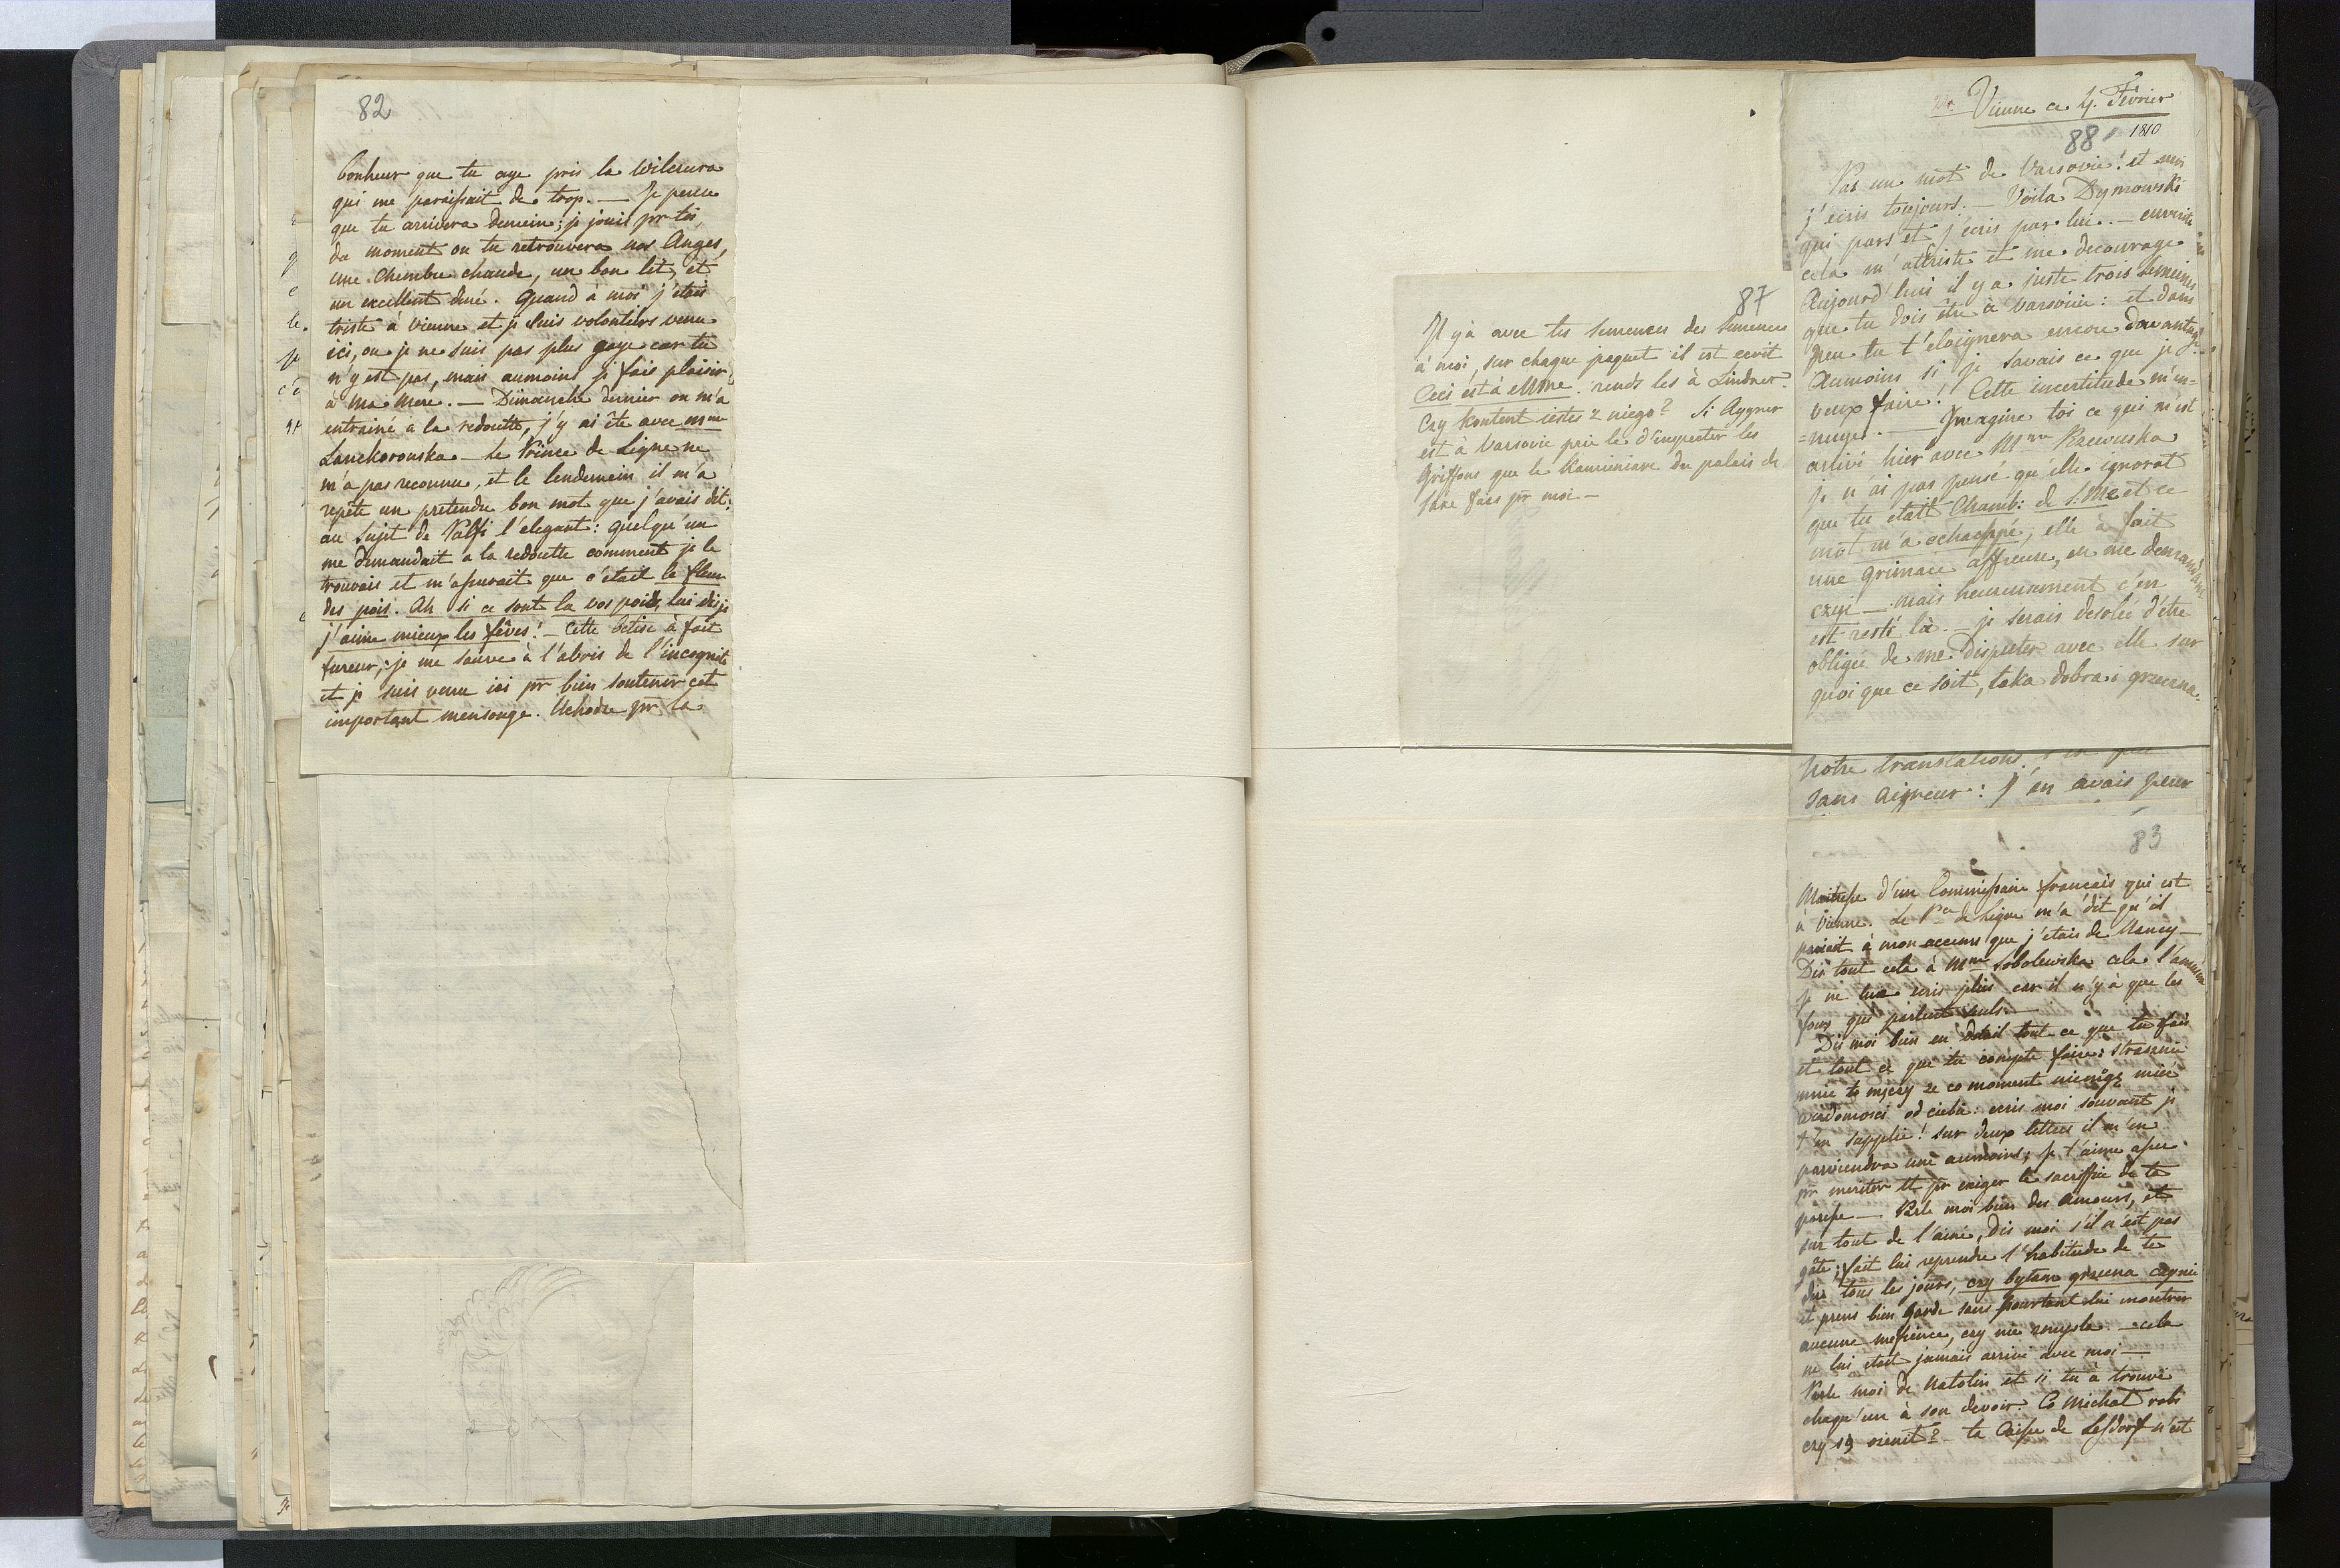 82
bonheur que tu aye pris la Wilczura
qui me paraissait de trop. — Je pense
que tu arrivera demain; je jouis pr toi,
du moment ou tu retrouvera nos Anges,
une chambre chaude, un bon lit, et
un excellent diné. Quand à moi j'étais
triste à Vienne et je suis volontiers venue
ici, ou je ne suis pas plus gaye car tu
n'y est pas, mais aumoins je fais plaisir
à Ma Mere. — Dimanche dernier on m'a
entrainé a la redoutte, j'y ai été avec Mme
Lanckoronska. — Le Prince de Ligne ne
m'a pas reconnue, et le lendemain il m'a
repété un pretendu bon mot que j'avais dit:
au sujet de Palfi l'elegant: quelqu'un
me demandait a la redoutte comment je le
trouvais et m'assurait que c'etait la fleur
des pois. Ah si ce sont la vos pois, lui dis je
j'aime mieux les fêves! — Cette betise à fait
fureur, je me sauve à l'abris de l'incognito
et je suis venue ici pr bien soutenir cet
important mensonge. Uchodze pr la
87
Il y a avec tes semences des semences
à moi, sur chaque paquet il est ecrit
Ceci est à Mme. rends les à Lindner.
Czy kontent iestes z niego? Si Aygner
est à Varsovie prie le d'inspecter les
Griffons que le Kamieniarz du palais de
Saxe fais pr moi —
24. Vienne ce 4. Février
88 1810
Pas un mot de Varsovie! et moi
j'ecris toujours. — Voila Dymowski
qui pars et j'écris par lui. —
cela m'attriste et me decourage
Aujourd'huis il y a juste trois semaines
que tu dois être à Varsovie: et dans
peu tu t'eloignera encore davantage
Aumoins si je savais ce que je
veux faire! Cette incertitude m'en=
=nuye. — Imagine toi ce qui m'est
arrivé hier avec Mme Rzewuska
je n'ai pas pensé qu'elle ignorat
que tu etait Chamb: de S. M. et ce
mot m'a echappé, elle à fait
une grimace affreuse, en me demandant
czyi — mais heureusement c'en
est resté là. — je serais desolée d'être
obligée de me disputer avec elle sur
quoi que ce soit, taka dobra i grzeczna.
Notre translation
sans aigreur: j'en avais peur
83
Maitresse d'un Commissaire francais qui est
à Vienne. Le Pce de Ligne m'a dit qu'il
pariait à mon accens que j'etais de Nancy —
Dis tout cela à Mme Sobolewska cela l'amusera
je ne lui ecris plus car il n'y à que les
fous qui parlent seuls. —
Dis moi bien en detail tout ce que tu fais
et tout ce que tu compte faire: strasznie
mnie to męczy ze co moment nieurze mieć
wiadomosci od ciebie: ecris moi souvent je
t'en supplie! sur deux lettres il m'en
parviendra une aumoins; je t'aime assez
pr meriter et pr exiger le sacriffice de ta
paresse — Parle moi bien des Amours, et
sur tout de l'ainé, dis moi s'il n'est pas
gâté; fait lui reprendre l'habitude de te
dire tous les jours, czy bytam grzeczna czy nie
et prens bien garde sans pourtant lui montrer
aucune mefience, czy nie zmysla. — cela
ne lui etait jamais arrivé avec moi —
Parle moi de Natolin et si tu à trouvé
chaqu'un à son devoir. Co Michał robi
czy się ozenił? — ta Caisse de Lesdorf n'est